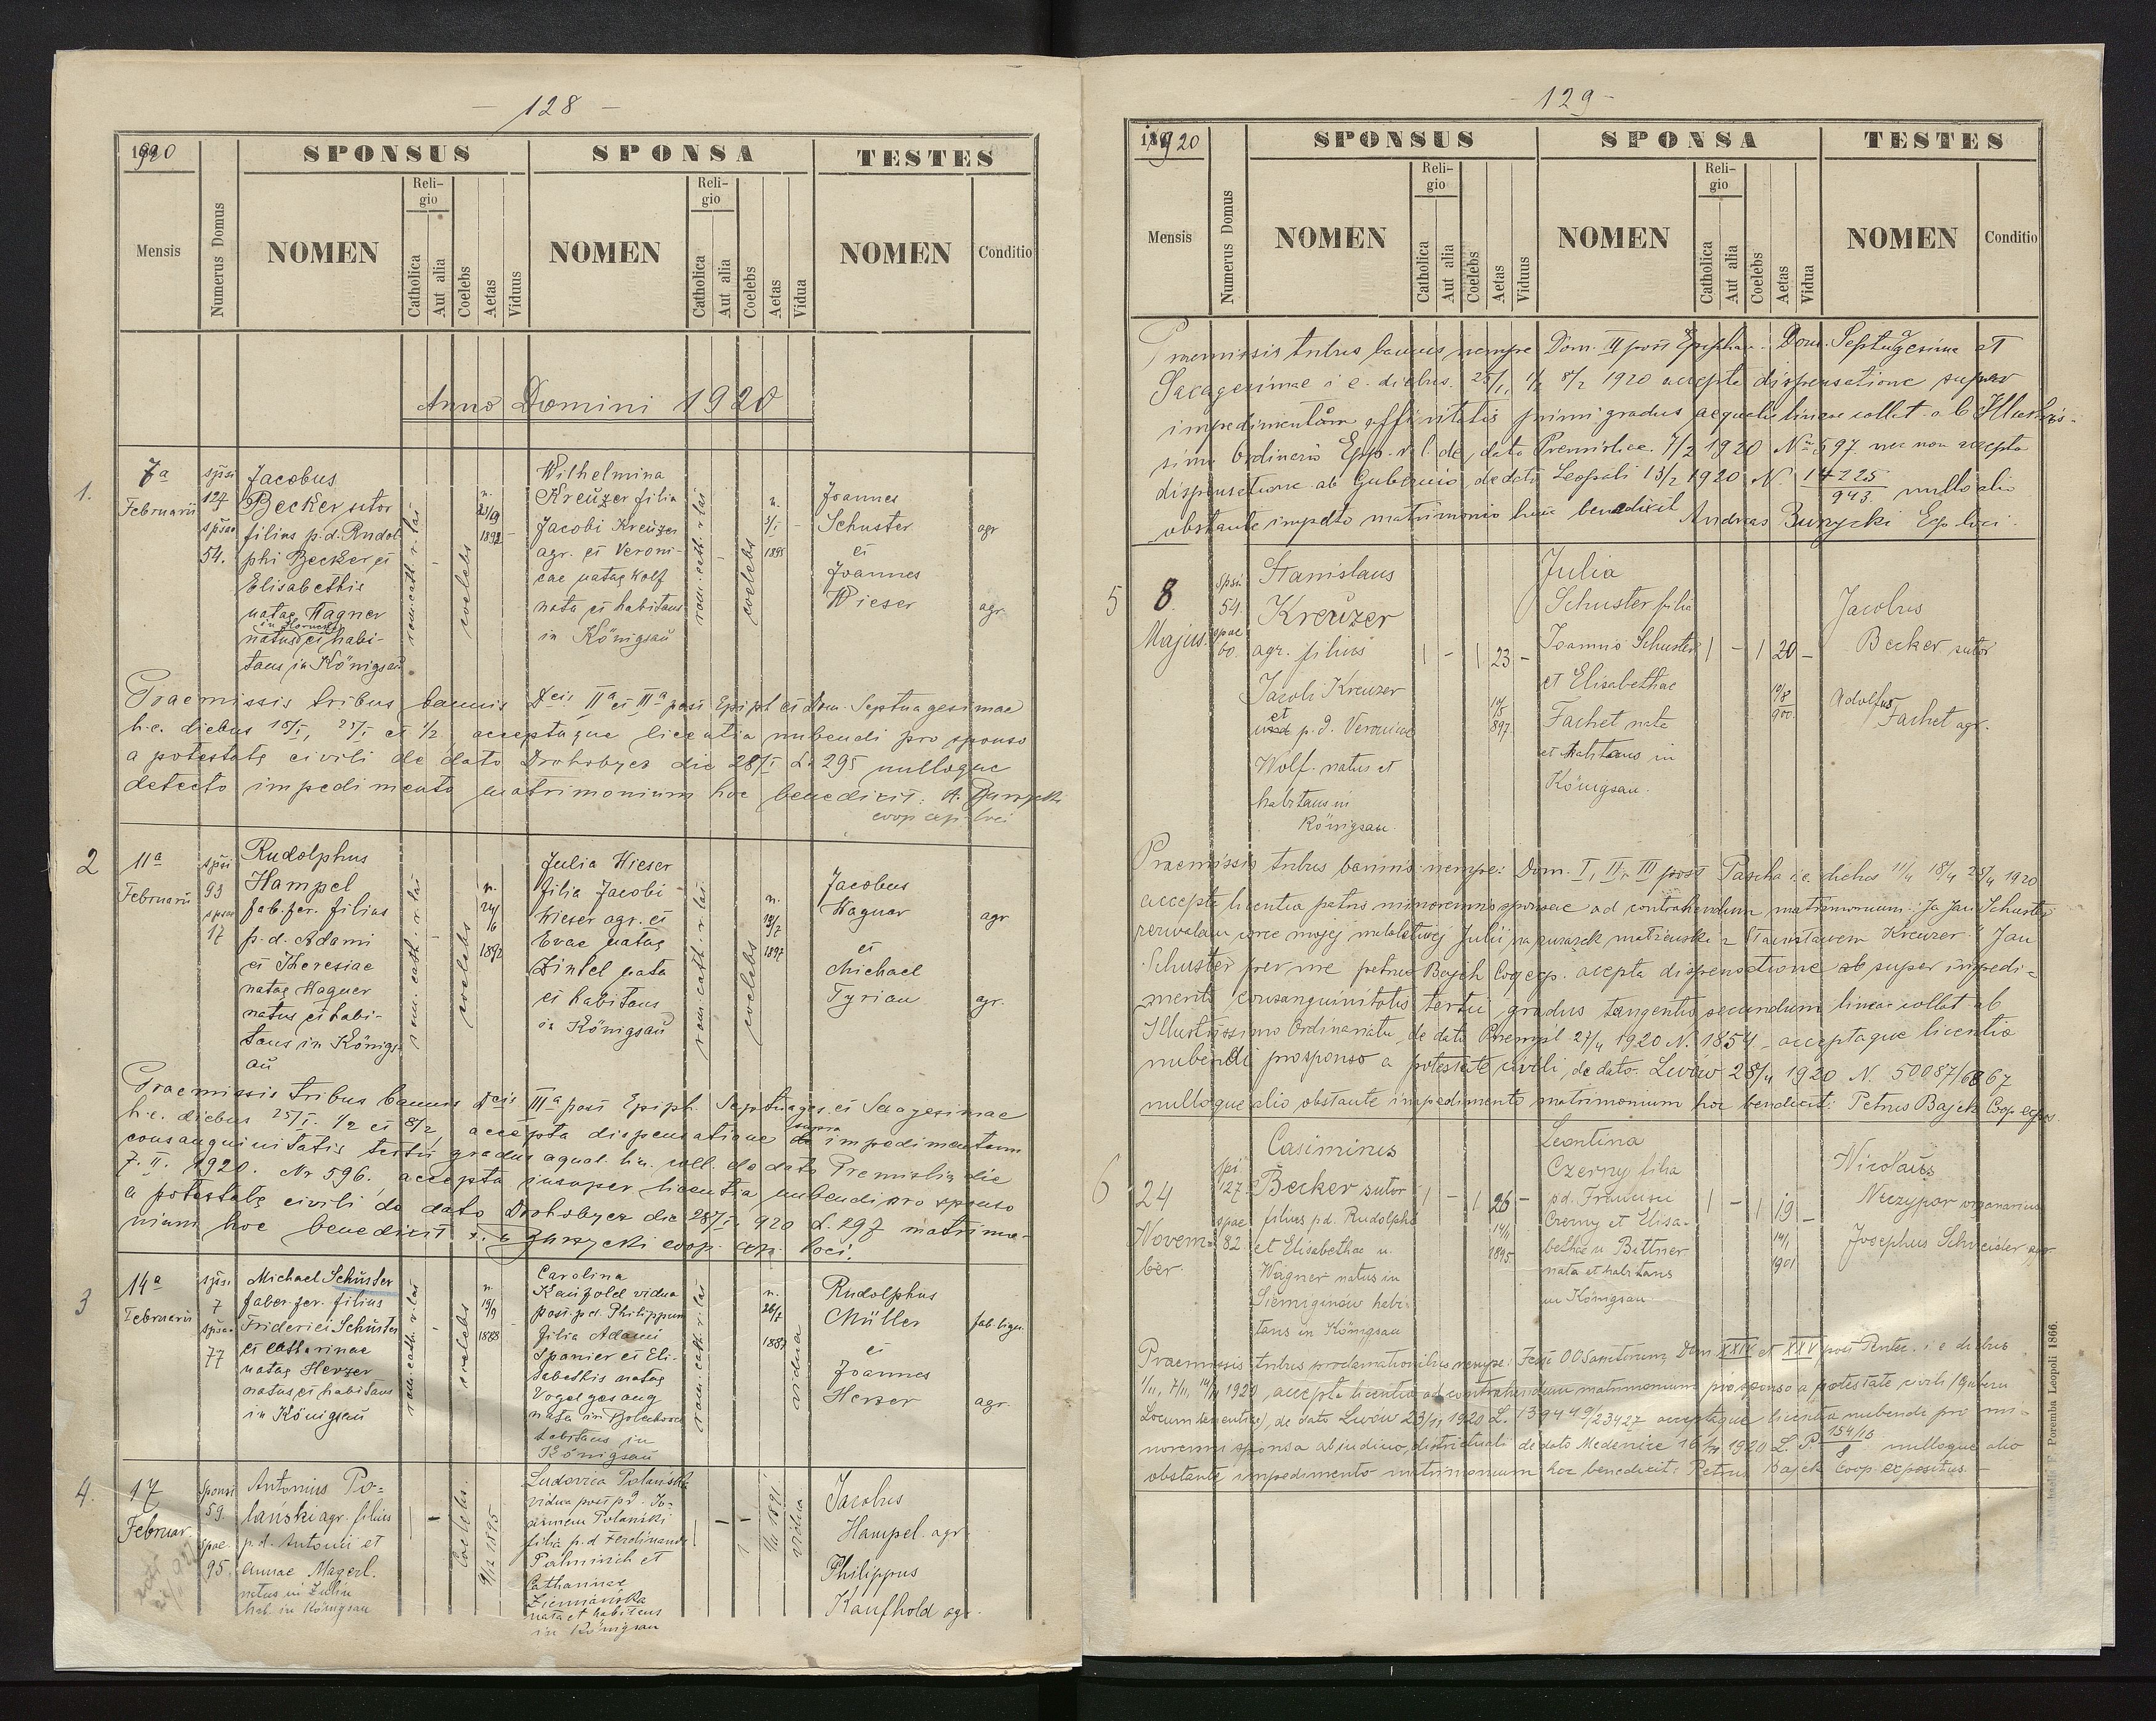 - 128 -
1920
SPONSUS
SPONSA
TESTES
Mensis
Numerus Domus
NOMEN
Religio
Catholica
Aut alia
Coelebs
Aetas
Viduus
NOMEN
Religio
Catholica
Aut alia
Coelebs
Aetas
Vidua
NOMEN
Conditio
Anno Domini 1920
1.
7a
Februarii
spsi
127
spsae
54.
Jacobus
Becker sutor
filius p.d. Rudol-
phi Becker et
Elisabethis
natae Wagner
natus et habi-
tans in Königsau
rom. cath. r. lat
-
coelebs
n.
1892
-
Wilhelmina
Kreuzer filia
Jacobi Kreuzer
agr. et Veroni-
cae natae Wolf
nata et habitans
in Königsau
rom. cath. r. lat
-
coelebs
n.
3/I
1895
-
Joannes
Schuster agr
et
Joannes
Wieser agr.
Praemissis tribus bannis Dcis IIa et IIIa post Epiph et Dom. Septuagesimae
h.e. diebus 18/I, 25/I et 1/2, acceptaque licentia nubendi pro sponso
a potestate civili de dato Drohobycz die 28/I L. 295 nulloque
detecto impedimento matrimonium hoc benedixit: A. Burzycki
coop exp. loci
2
11a
Februarii
spsi
93
spsae
17
Rudolphus
Hampel
fab. fer. filius
p.d. Adami
et Theresiae
natae Wagner
natus et habi-
tans in Königs-
au
rom. cath. r. lat
-
coelebs
n.
24/
16
1892
Julia Wieser
filia Jacobi
Wieser agr. et
Evae natae
Zintel nata
et habitans
in Königsau
rom. cath. r. lat
coelebs
n.
19/7
1897
Jacobus
Wagner agr
et
Michael
Tyrian agr.
Praemissis tribus bannis Dcis IIIa post Epiph. Septuages. et Sexagesimae
h.e. diebus 25/I. 1/2 et 8/2, accepta dispensatione supra impedimentum
consanguinitatis tertii gradus aequal. lin. coll. de dato Premisliae die
7. II. 1920. Nr 596., accepta insuper licentia nubendi pro sponso
a potestate civili de dato Drohobycz die 28/I. 920 L. 297 matrimo-
nium hoc benedixit A. Burzycki coop. exp. loci.
3
14a
Februarii
spsi
7
spsae
77
Michael Schuster
faber fer. filius
Friderici Schuster
et Catharinae
natae Herzer
natus et habitans
in Königsau
rom. cath. r. lat
-
coelebs
n.
19/9
1888
Carolina
Kaufold vidua
post p.d. Philippum
filia Adami
Spanier et Eli-
sabethis natae
Vogelgesang
nata in
habitans in
Königsau
rom. cath. r. lat
n.
26/2
1887
vidua
Rudolphus
Müller fab. lign.
et
Joannes
Herzer agr.
4.
17
Februar.
sponsi
59.
spae.
95.
Antonius Po-
lański agr. filius
p.d. Antonii et
Annae Magerl.
natus in Zulin
hab. in Königsau
-
Coelebs
9/12 1895
Ludovica Polańska
vidua post p.d. Jo-
annem Polański
filia p.d Ferdinandi
Palminich et
Catharinae
Ziemiańska
nata et habitans
in Königsau
-
-
1/11 1891
vidua
Jacobus
Hampel agr
Philippus
Kaufhold agr.
- 129 -
1920
SPONSUS
SPONSA
TESTES
Mensis
Numerus Domus
NOMEN
Religio
Catholica
Aut alia
Coelebs
Aetas
Viduus
NOMEN
Religio
Catholica
Aut alia
Coelebs
Aetas
Vidua
NOMEN
Conditio
Praemissis tribus bannis nempe Dom. III post Epiphan. Dom. Septuagesimae et
Sexagesimae i e. diebus. 25/1, 1/2 8/2 1920 accepta dispensatione super
impedimentum affinitatis primi gradus aequalis lineae collat. ab Illustris-
simo Ordinario Epp. r. l. de dato Premisliae 7/2 1920 No 597 nec non accepta
dispensatione ab Gubernio de dato Leopoli 13/2 1920 N. 17225/943. nullo alio
obstante impedto matrimonio huic benedixit Andreas Burzycki Exp loci.
5
8
Majus.
Spsi
54.
spae
60.
Stanislaus
Kreuzer
agr. filius
Jacobi Kreuzer
et p.d. Veronicae
Wolf. natus et
habitans in
Königsau.
1 - 1 23 -
10/5
897
Julia
Schuster filia
Joannis Schuster
et Elisabethae
Fachet nata
et habitans in
Königsau.
1 - 1 20 -
19/8
900.
Jacobus
Becker sutor
Adolfus
Fachet agr.
Praemissis tribus bannis nempe: Dom. I, II, III post Pascha i.e. diebus 11/4 18/4 25/4 1920
accepta licentia patris minorennis sponsae ad contrahendum matrimonium: "Ja Jan Schuster
pozwalam córce mojej małoletniej Julii na związek małżeński z Stanisławem Kreuzer." Jan
Schuster per me petrus Bajek Coop exp. acepta dispensatione ab super impedi-
mento consanguinitatis tertii gradus tangentis secundum lineae collat ab
Illustrissimo Ordinariatu, de dato Przemyśl 27/4 1920 N. 1854 - acceptaque licentia
nubendi pro sponso a potestate civili, de dato. Lwów 28/4 1920 N. 50087/6867
nulloque alio obstante impedimento matrimonium hoc benedixit: Petrus Bajek Coop expos.
6
24
Novem-
ber.
spsi.
127.
spae
82.
Casimirus
Becker sutor
filius pd. Rudolphi
et Elisabethae n.
Wagner natus in
Siemiginów habi-
tans in Königsau
1 - 1 26 -
14/11
1895
Leontina
Czerny filia
pd. Francisci
Czerny et Elisa-
bethae n Bittner
nata et habitans
in Königsau.
1 - 1 19 -
14/1
1901
Nicolaus
Neczypor organarius
Josephus Schneider agr
Praemissis tribus proclamationibus nempe: Festi OOSanctorum, Dom XXIV et XXV post Pentec. i e diebus
1/11, 7/11, 14/11 1920, accepta licentia ad contrahendum matrimonium pro sponso a potestate civili (Gubern
Locumtenentiae), de dato Lwów 23/11 1920 L. 139449/23427 acceptaque licentia nubendi pro mi-
norenni sponsa ab judicio, districtuali de dato Medenice 16/11 1920 L. P. 154/10/8 nulloque alio
obstante impedimento matrimonium hoc benedixit: Petrus Bajek Coop expositus. -
F. Poremba Leopoli 1866.